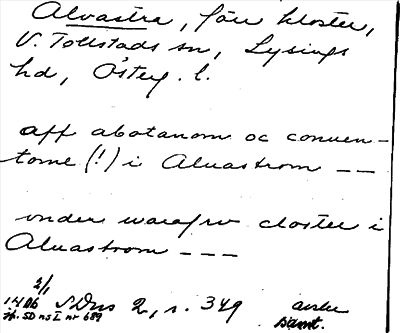 Alvastra, förr kloster,
V. Tollstads sn, Lysings
hd, Österg. l.
aff abotanom oc conuen-
tome (!) i Aluastrom --
vnder warafrv closter i
Aluastrom ---
2/1
1406 SDns 2, s. 349 avskr
jfr. SD ns I nr 689 samt.